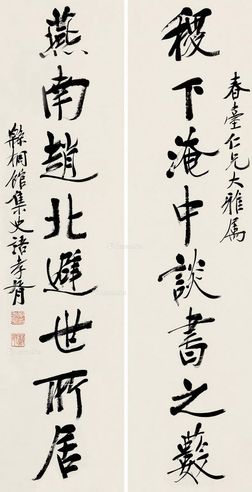 春臺仁兄大雅属
稷下淹中談書之藪
燕南趙北避世所居
緜桐館集史語孝胥